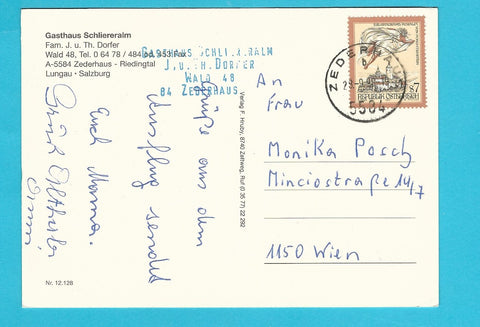 Gasthaus Schliereralm
Fam. J. u. Th. Dorfer
Wald 48, Tel. 0 64 78 / 484 od. 353 Fax
A-5584 Zederhaus - Riedingtal
Lungau - Salzburg
GASTHAUS SCHLIERERALM
J. u. TH. DORFER
WALD 48
84 ZEDERHAUS
Grüße aus dem
Ausflug sendet
Euch Mama.
Nr. 12.128
Verlag F. Hruby, 8740 Zeltweg, Ruf (0 35 77) 22 292
ZEDERHAUS
5584
S7
REPUBLIK ÖSTERREICH
An
Frau
Monika Posch
Minciostraße 14/7
1150 Wien